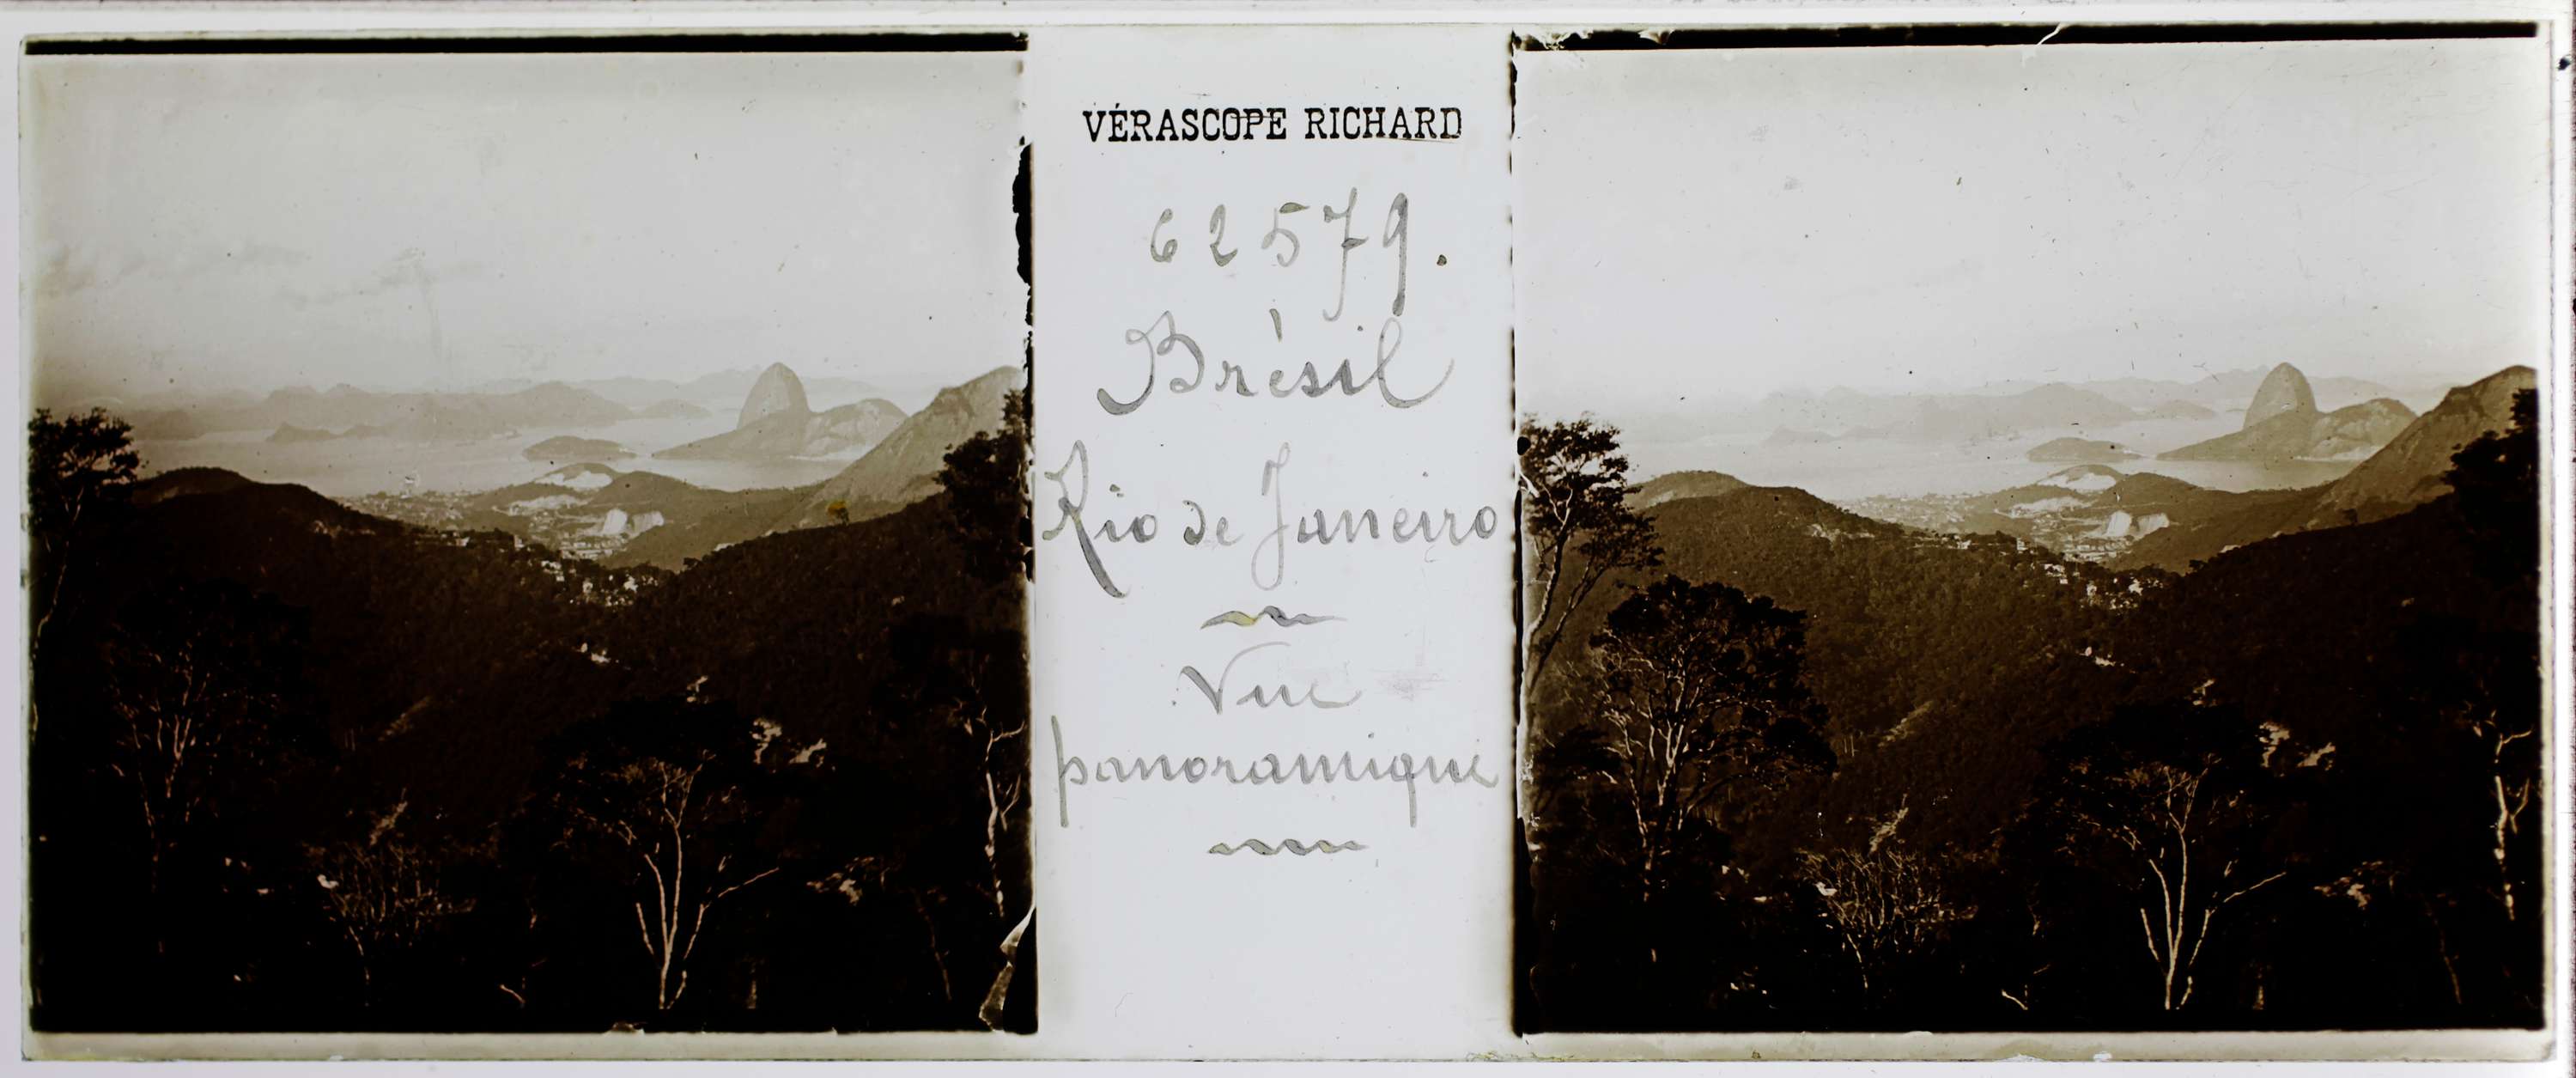 VÉRASCOPE RICHARD
62579.
Brésil
Rio de Janeiro
Vue
panoramique